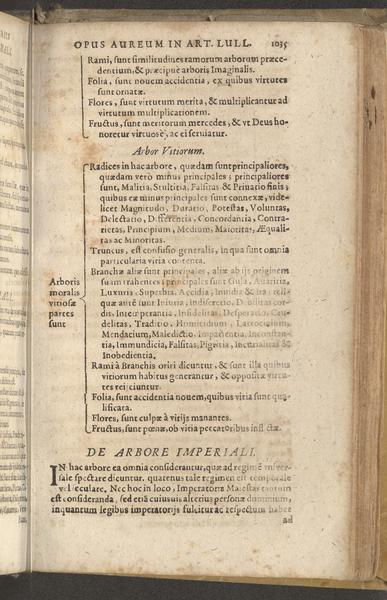 OPUS AUREUM IN ART. LULL. 1035
Rami, sunt similitudines ramorum arborum præce-
dentium, & præcipuè arboris Imaginalis.
Folia, sunt nouem accidentia, ex quibus virtutes
sunt ornatæ.
Flores, sunt virtutum merita, & multiplicantur ad
virtutum multiplicationem.
Fructus, sunt meritorum mercedes, & vt Deus ho-
noretur virtuosè, ac ei seruiatur.
Arbor Vitiorum.
Radices in hac arbore, quædam sunt principaliores,
quædam verò minus principales; principaliores
sunt, Malitia, Stultitia, Falsitas & Priuatio finis;
quibus eæ minus principales sunt connexæ, vide-
licet Magnitudo, Duratio, Potestas, Voluntas,
Delectatio, Differentia, Concordantia, Contra-
rietas, Principium, Medium, Maioritas, Æquali-
tas ac Minoritas.
Truncus, est confusio generalis, in qua sunt omnia
particularia vitia contenta.
Branchæ aliæ sunt principales, aliæ ab ijs originem
suam trahentes; principales sunt Gula, Auaritia,
Luxuria, Superbia, Accidia, Inuidia & Ira; reli-
quæ autē sunt Iniuria, Indiscretio, cor-
dis, Intemperantia, Infidelitas, Desperatio, Cru-
delitas, Traditio, Homicidium, Latrocinium,
Mendacium, Maledictio, Impatientia, Inconstan-
tia, Immundicia, Falsitas, Pigritia, &
Inobedientia.
Rami à Branchis oriri dicuntur, & sunt illa quibus
vitiorum habitus generantur, & oppositæ virtu-
tes reijciuntur.
Folia, sunt accidentia nouem, quibus vitia sunt qua-
lificata.
Flores, sunt culpæ à vitijs manantes.
Fructus, sunt pœnæ, ob vitia peccatoribus inflictæ.
Arboris
moralis
vitiosæ
partes
sunt
DE ARBORE IMPERIALI.
IN hac arbore ea omnia considerantur, quæ ad regimē vniuer-
sale spectare dicuntur. quatenus tale regimen est temporale
vel seculare. Nec hoc in loco, Imperatoris Maiestas tantum
est consideranda, sed etiā cuiusuis alterius personæ dominium,
inquantum legibus imperatorijs fulcitur ac respectum habet
ad